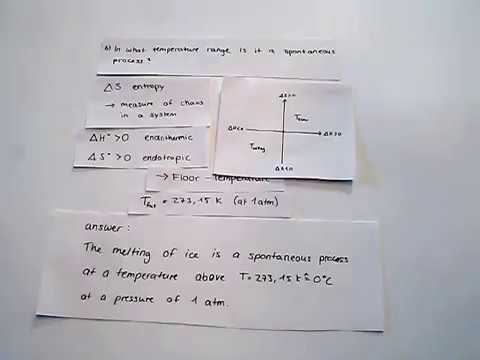 b) In what temperature range is it a spontaneous
process?
ΔS entropy
→ measure of chaos
in a system
ΔH° >0 enanthermic
ΔS° >0 endotropic
ΔS>0
ΔH<0
ΔH>0
ΔS<0
→ Floor-Temperature
= 273,15 K (at 1 atm)
answer:
The melting of ice is a spontaneous process
at a temperature above T=273,15 K≙0°C
at a pressure of 1 atm.